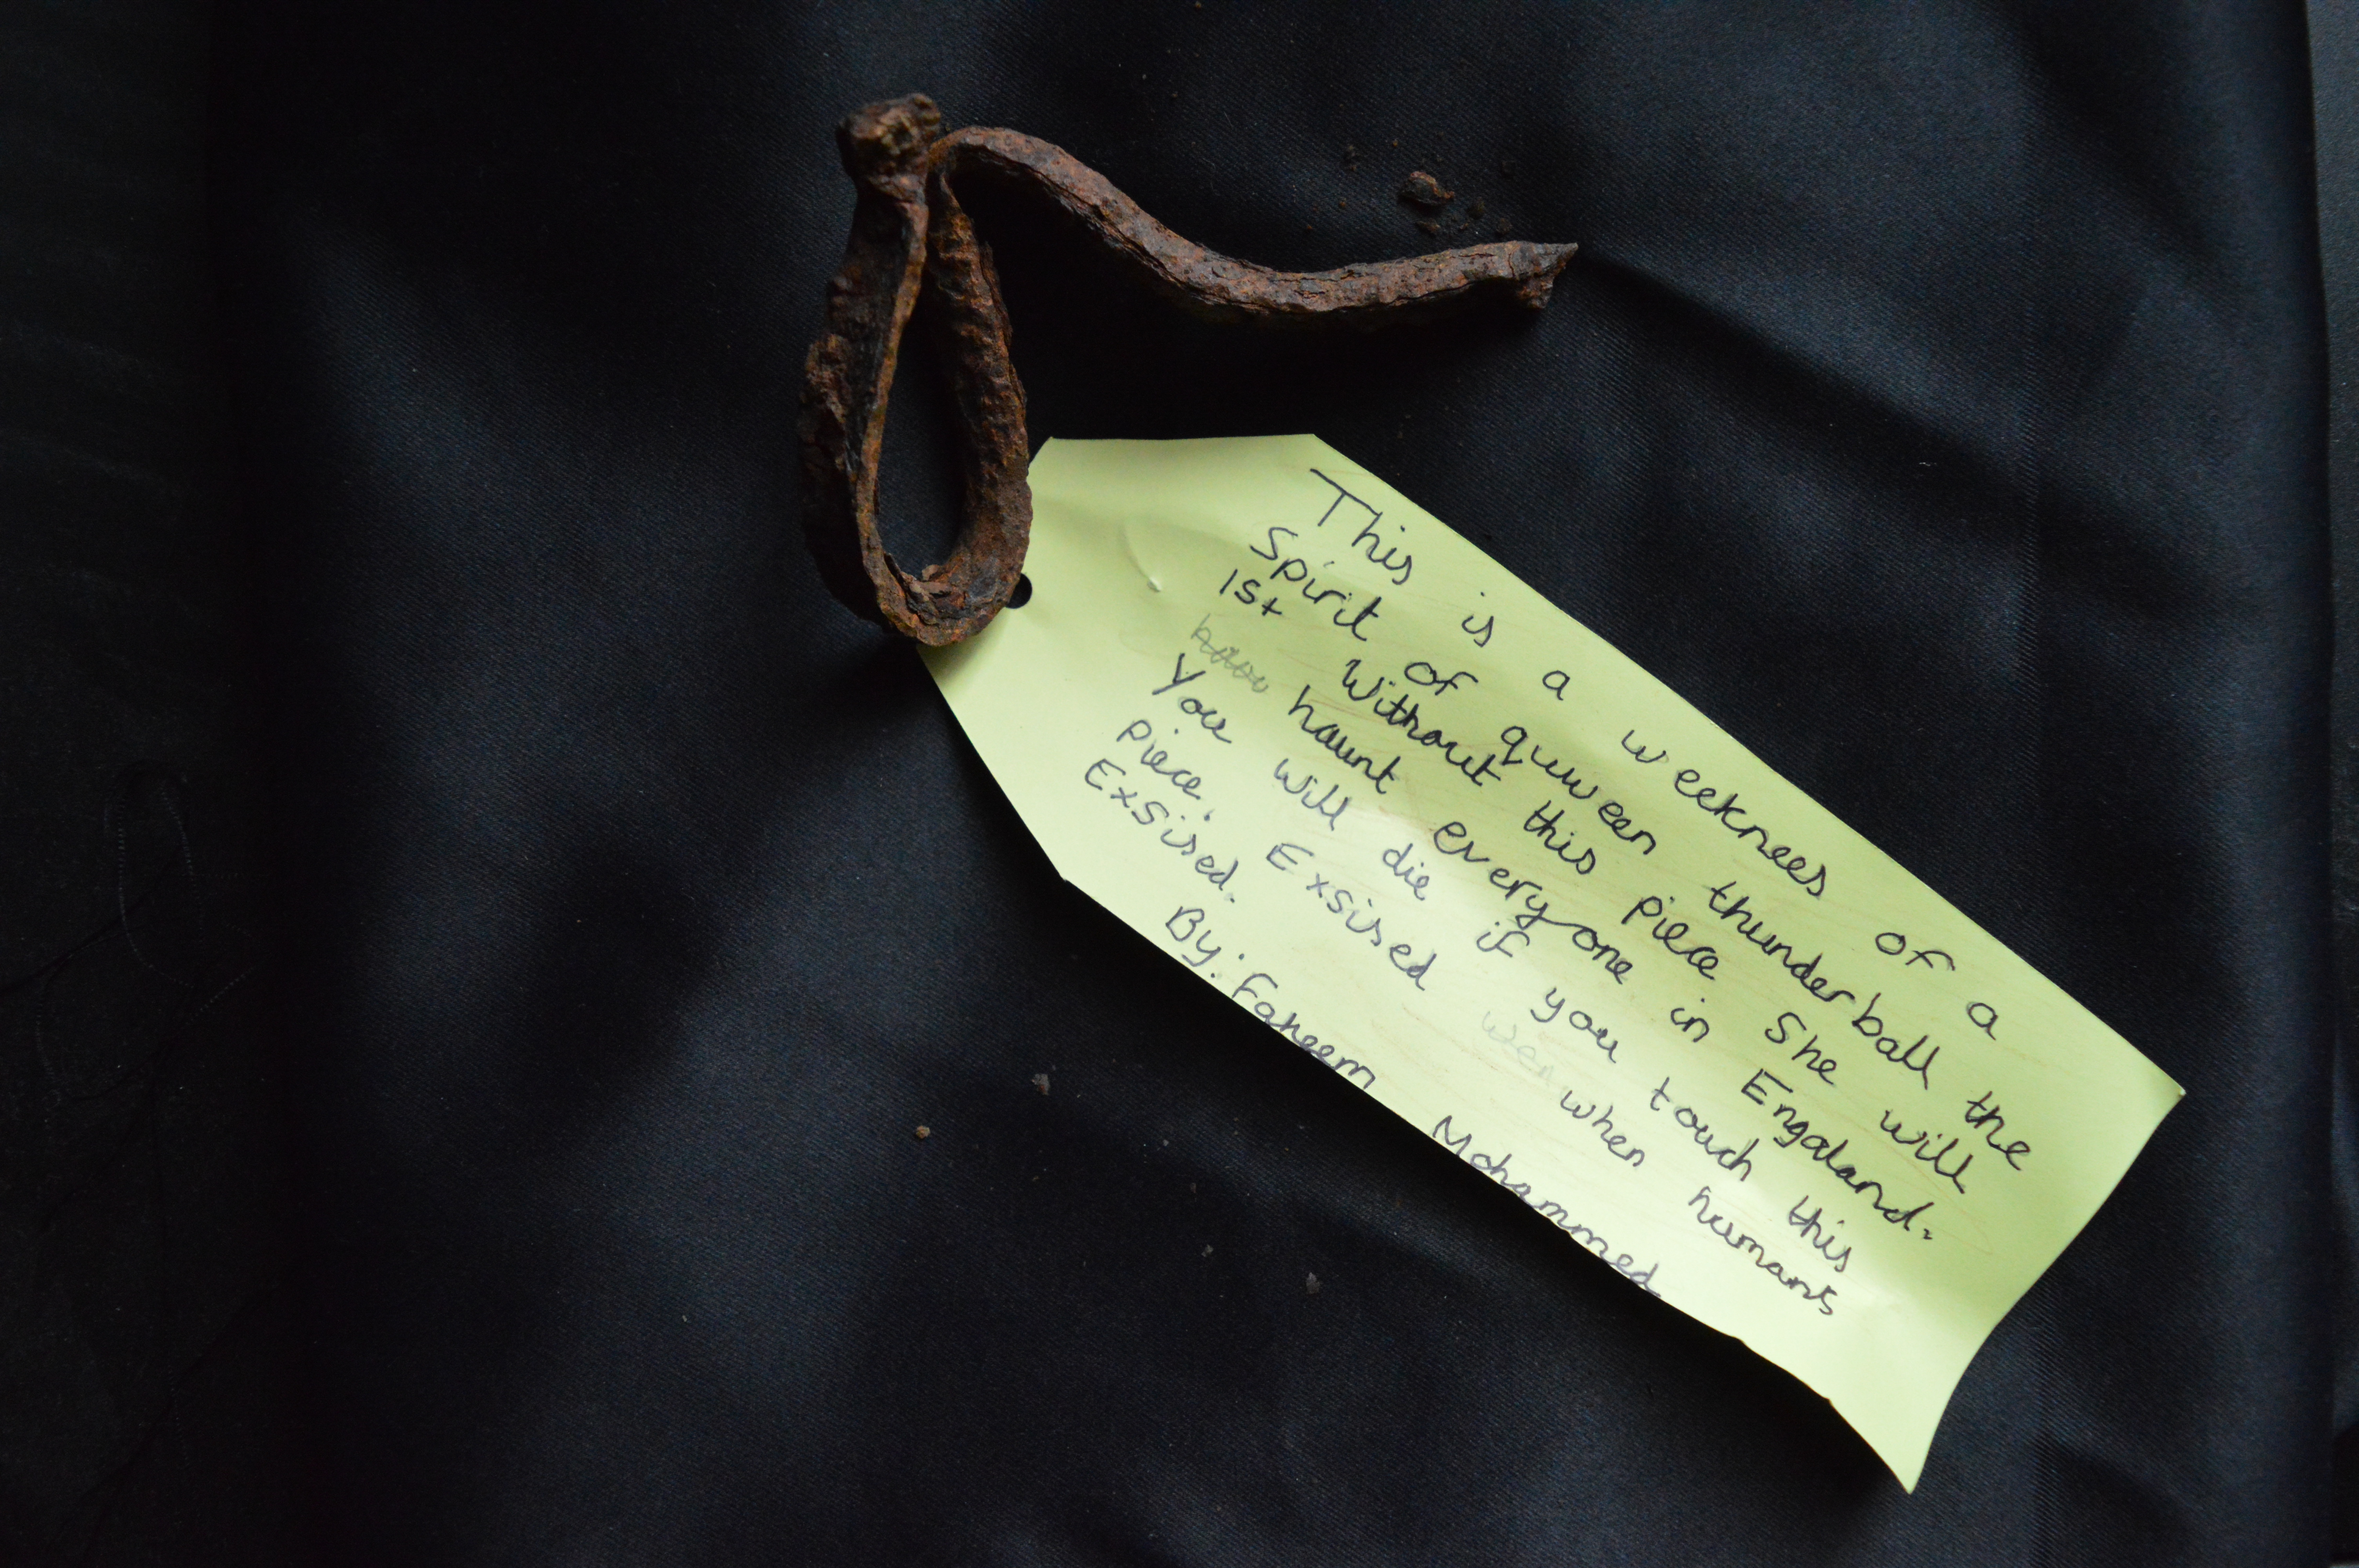 This is a weeknees of a
Spirit of quween thunderball the
1st Without this piece She will
haunt everyone in Engaland.
You will die if you touch this
piece. Exsised wen when humans
Exsised.
By: Faheem Mohammed